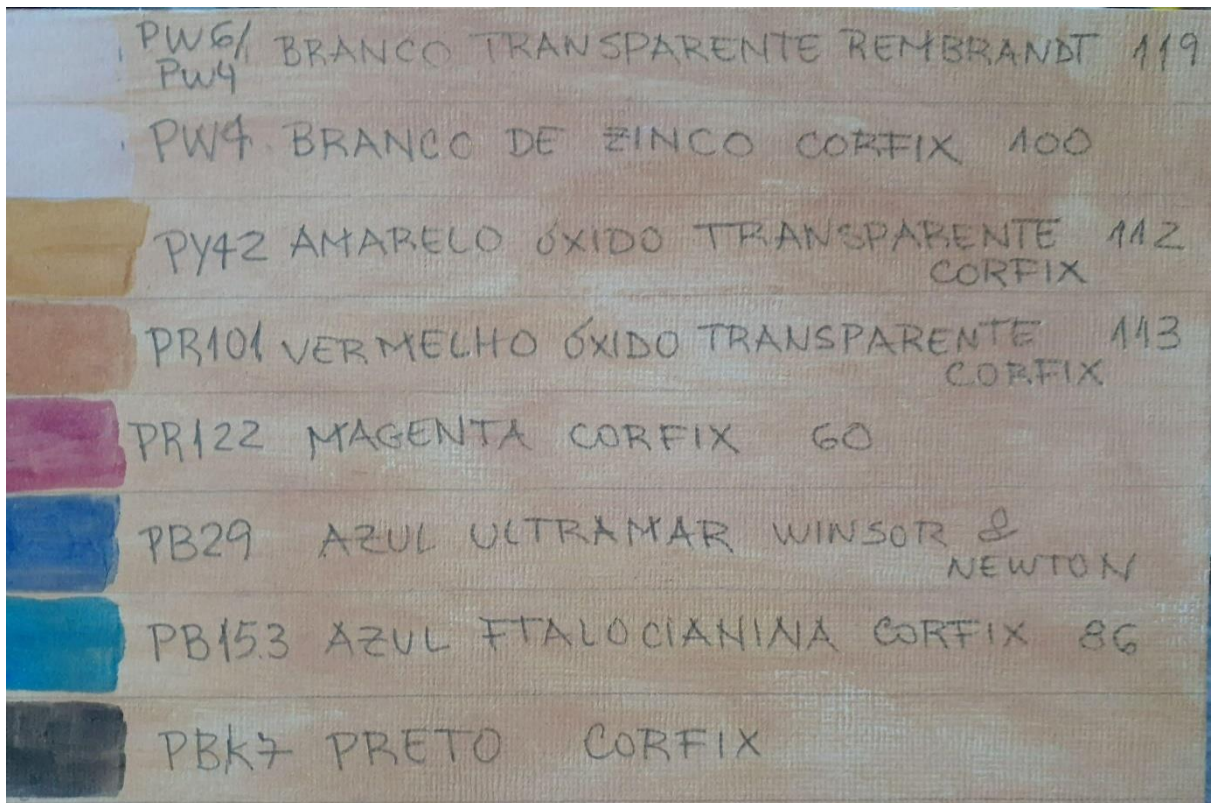 PW6/ BRANCO TRANSPARENTE REMBRANDT 119
PW4
PW4. BRANCO DE ZINCO CORFIX 100
PY42 AMARELO ÓXIDO TRANSPARENTE 112
CORFIX
PR101 VERMELHO ÓXIDO TRANSPARENTE 113
CORFIX
PR122 MAGENTA CORFIX 60
PB29 AZUL ULTRAMAR WINSOR &
NEWTON
PB15.3 AZUL FTALOCIANINA CORFIX 86
PBK7 PRETO CORFIX